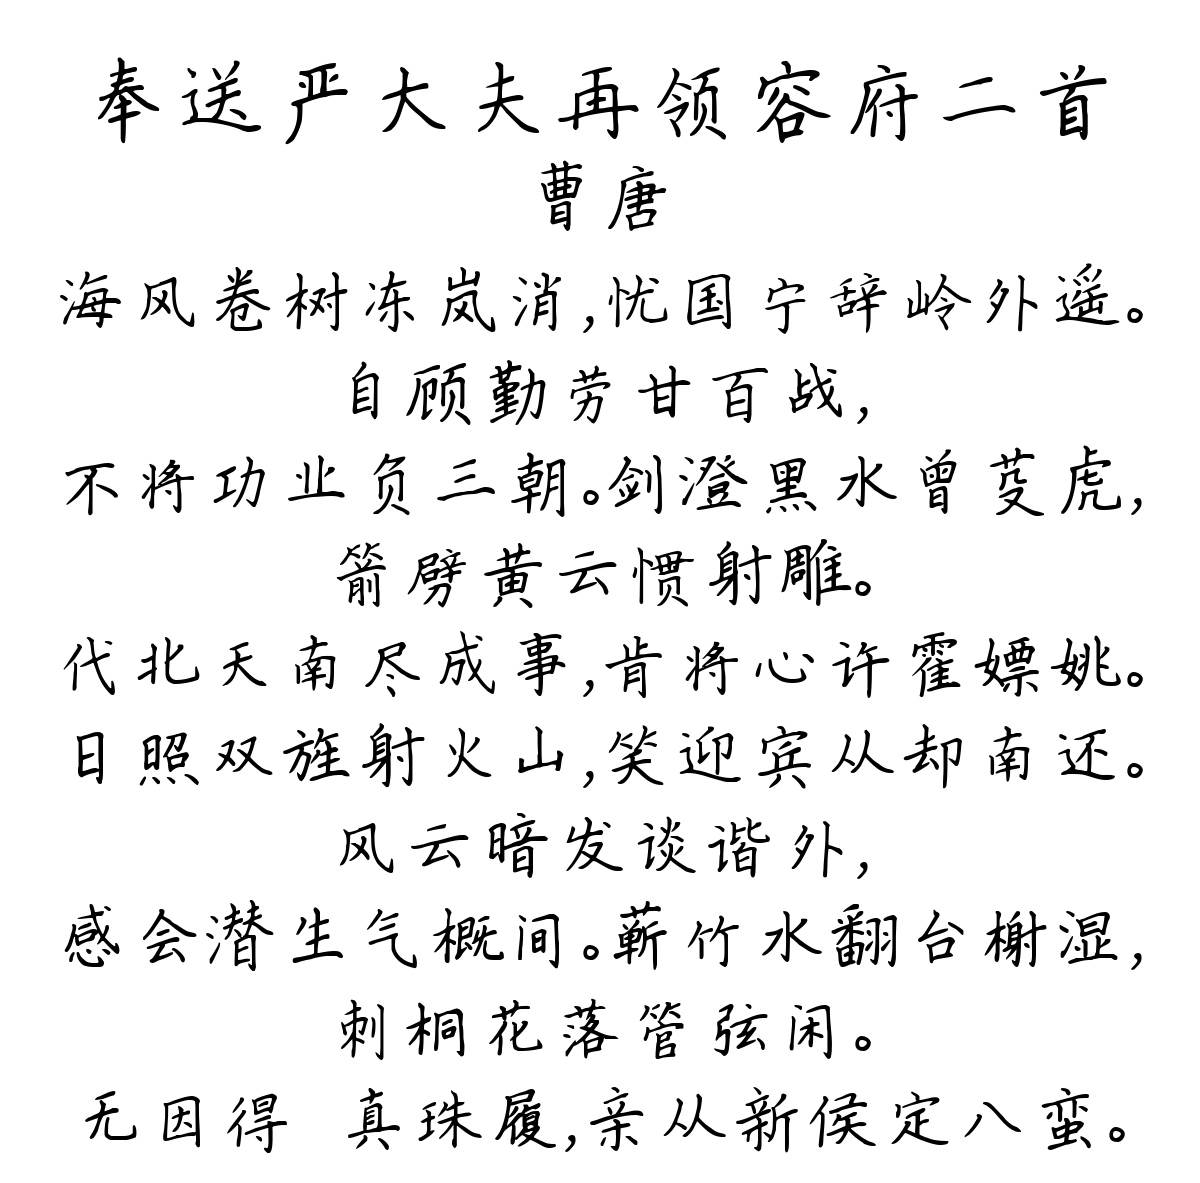 奉送严大夫再领容府二首
曹唐
海风卷树冻岚消,忧国宁辞岭外遥。
自顾勤劳甘百战,
不将功业负三朝。剑澄黑水曾芟虎,
箭劈黄云惯射雕。
代北天南尽成事,肯将心许霍嫖姚。
日照双旌射火山,笑迎宾从却南还。
风云暗发谈谐外,
感会潜生气概间。蕲竹水翻台榭湿,
刺桐花落管弦闲。
无因得 真珠履,亲从新侯定八蛮。